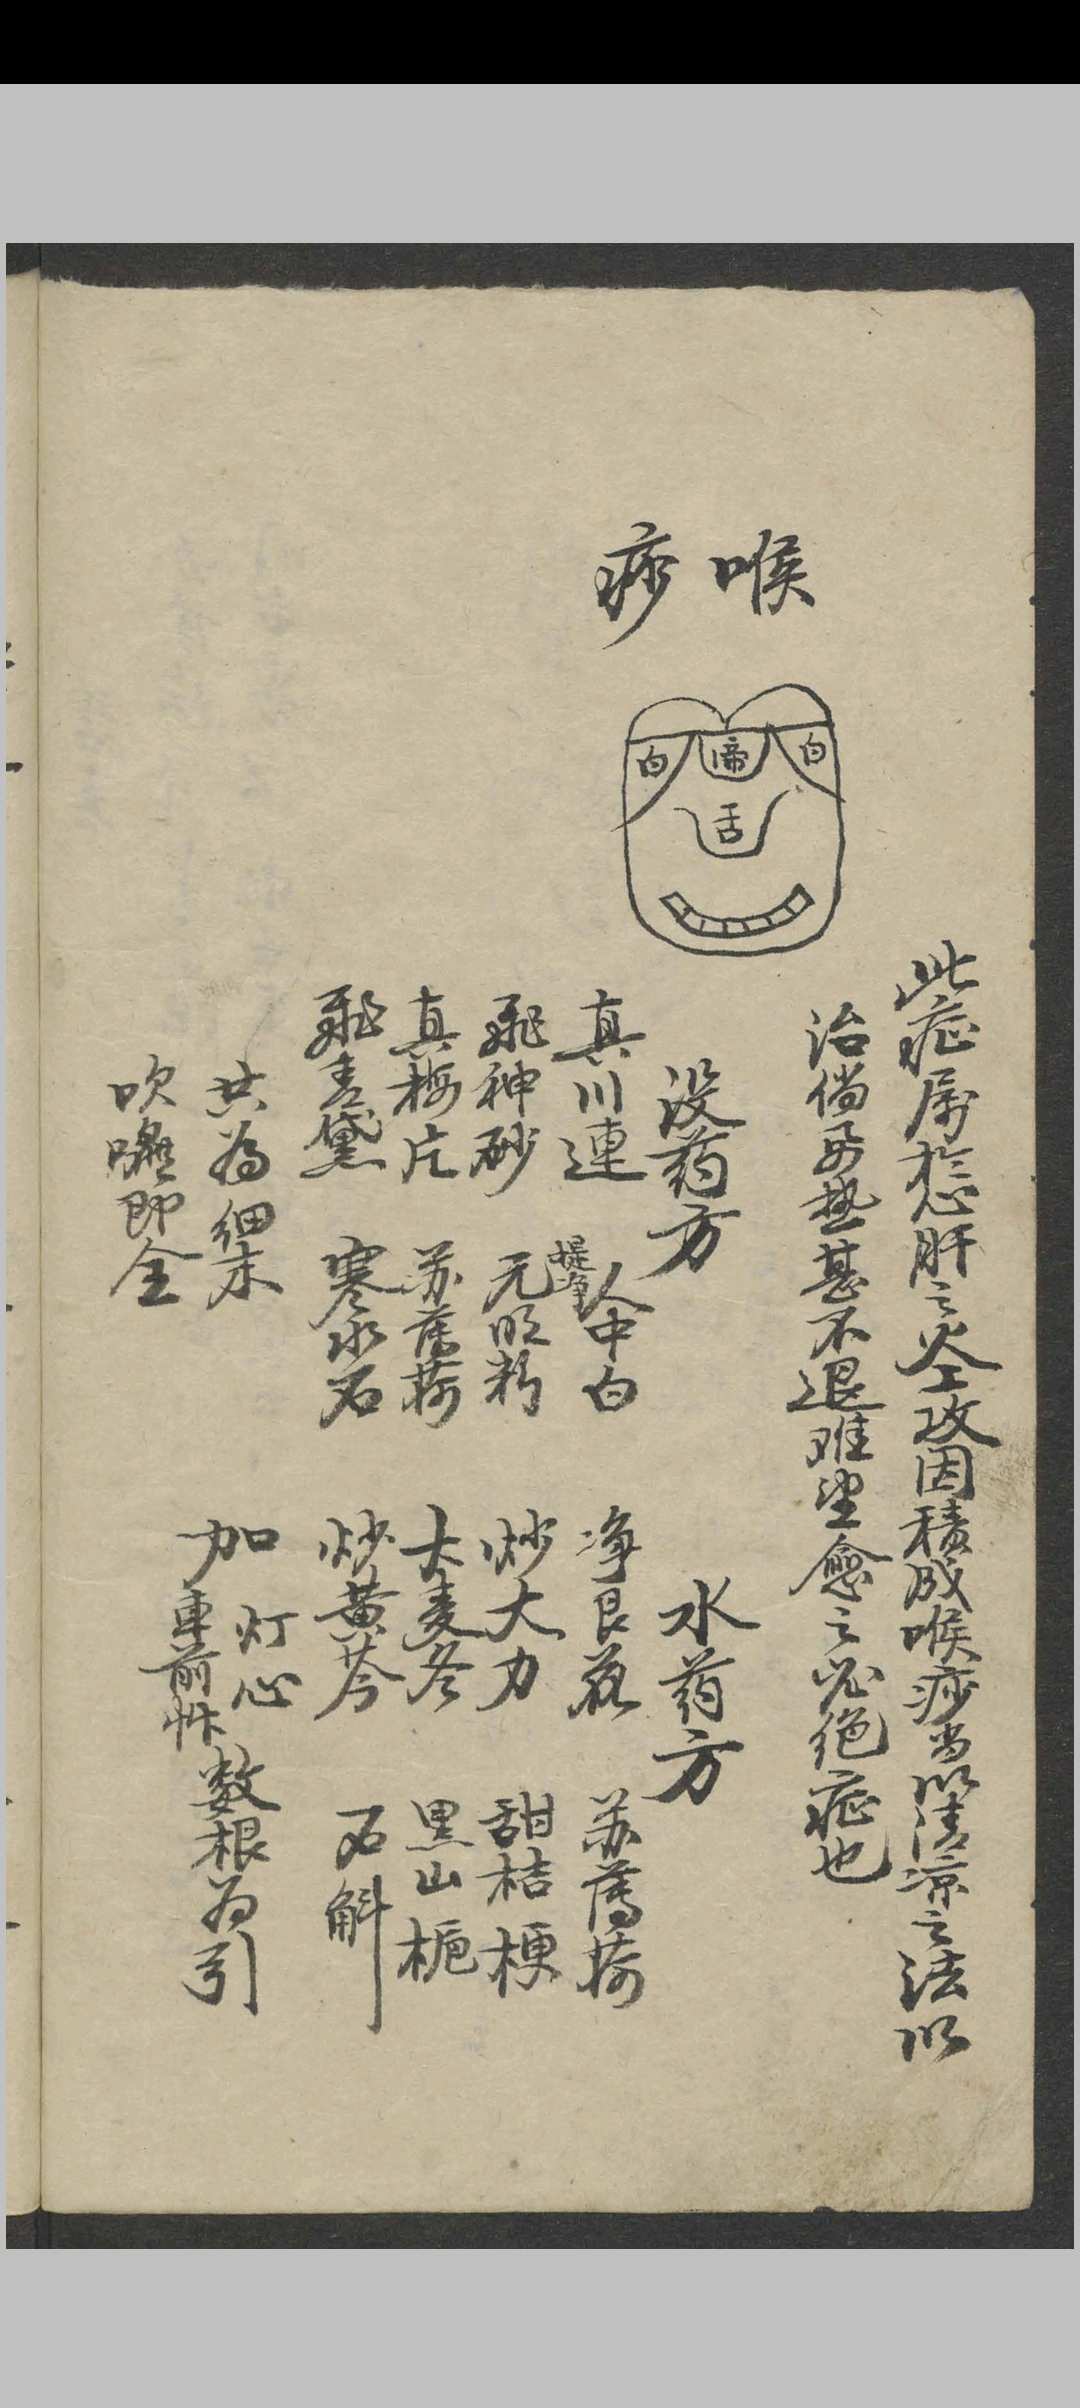 喉痧
白 啼 白
舌
此症属於心肝之火上攻因積成喉痧当以清凉之法以
治倘若熱甚不退难望愈之必绝症也
没药方
真川連 提净人中白
飛神砂 元明粉
真梅片 苏薄荷
飛青黛 寒水石
共為细末
吹嚨即全
水药方
净艮花 苏薄荷
炒大力 甜桔梗
大麦冬 黑山栀
炒黄芩 石斛
加 灯心 車前 数根为引